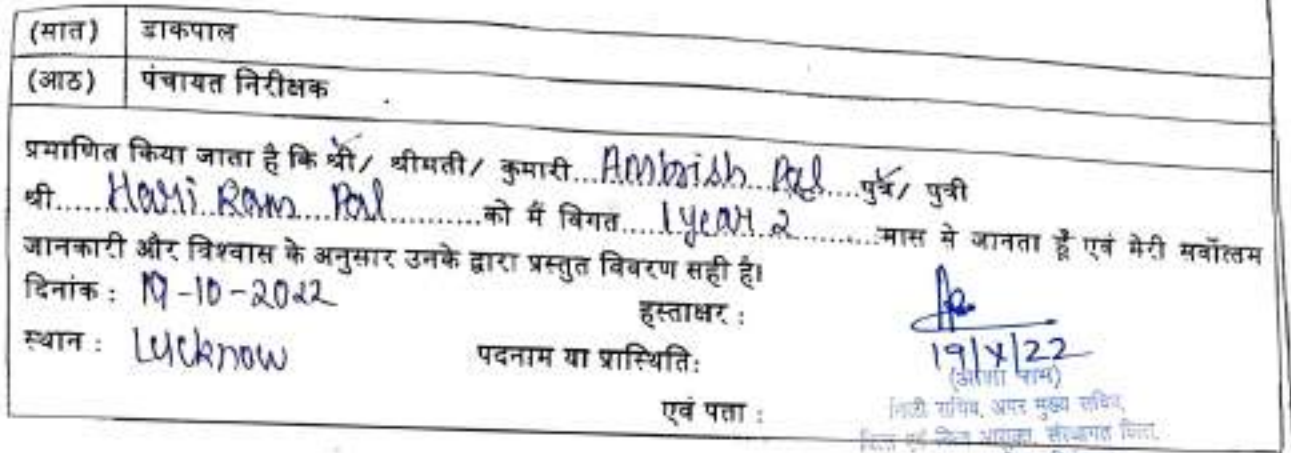 (सात) डाकपाल
(आठ) पंचायत निरीक्षक
प्रमाणित किया जाता है कि श्री/ श्रीमती/ कुमारी...Ambrish Pal.....पुत्र/ पुत्री
श्री......Hari Ram Pal...........को मैं विगत.....1 year 2..........मास से जानता हूँ एवं मेरी सर्वोत्तम
जानकारी और विश्वास के अनुसार उनके द्वारा प्रस्तुत विवरण सही है।
दिनांक : 19-10-2022 हस्ताक्षर :
19/X/22
स्थान : Lucknow पदनाम या प्रास्थिति:
एवं पता : निजी सचिव, अपर मुख्य सचिव,